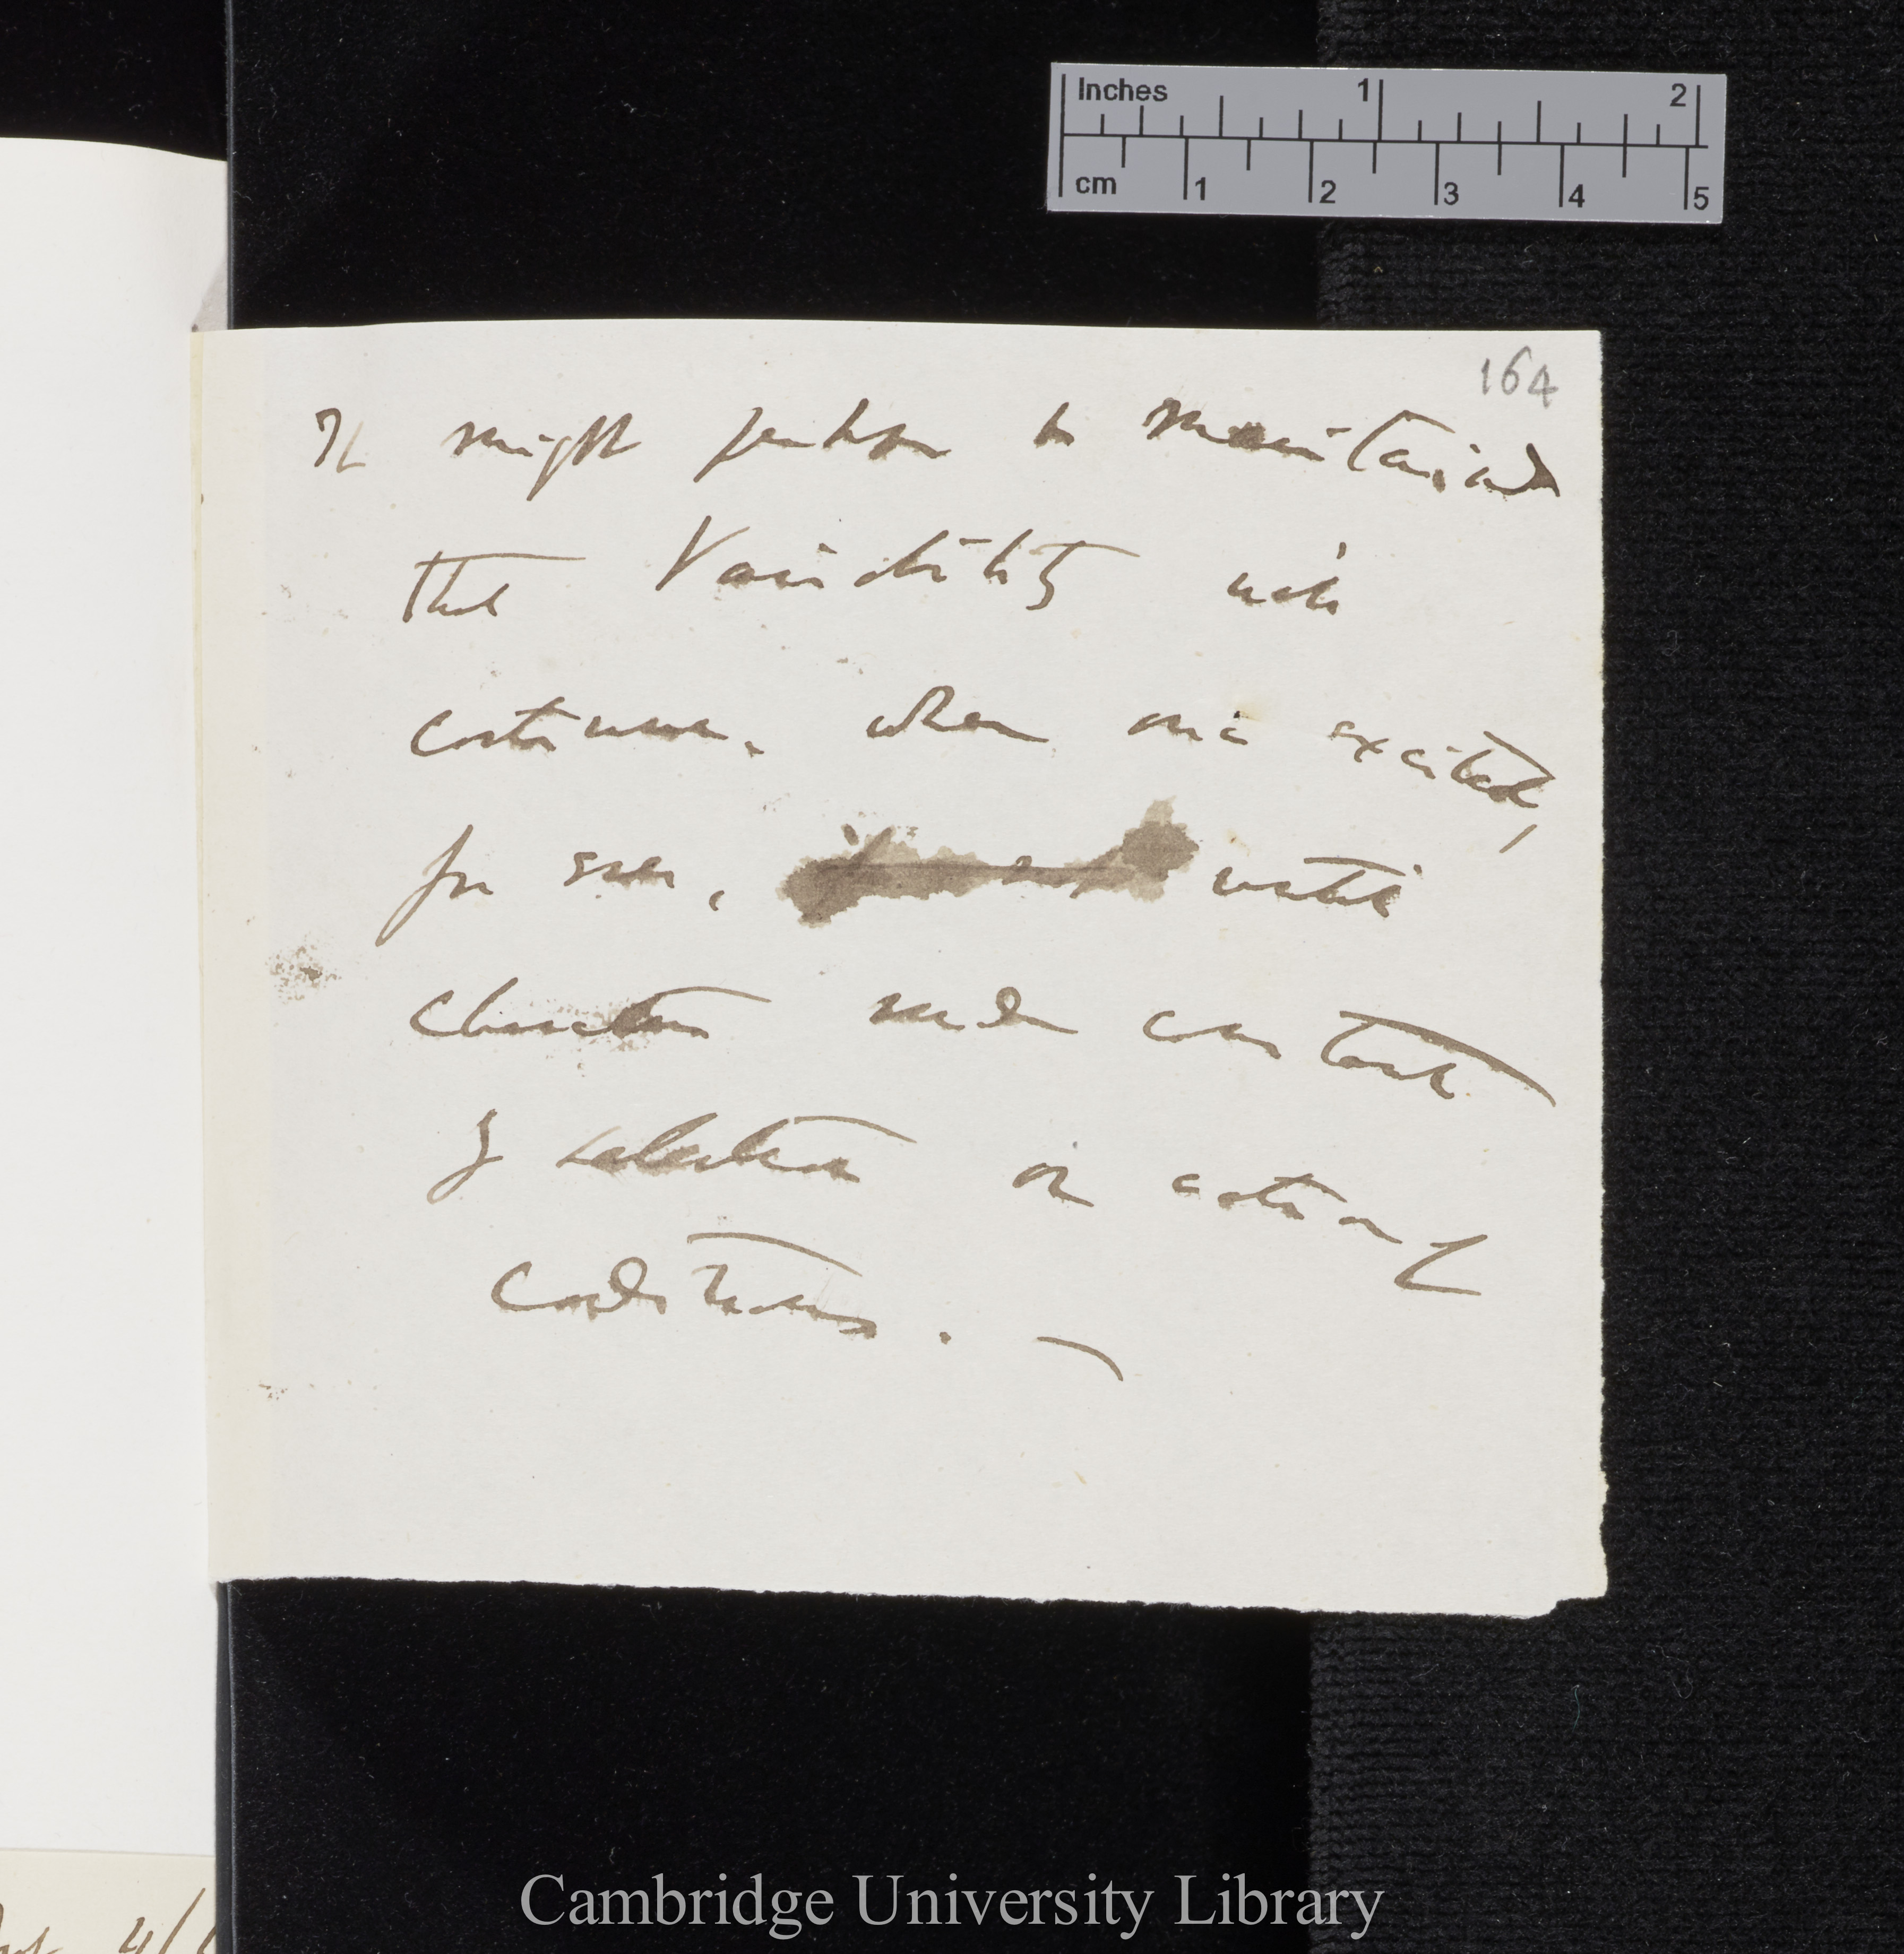 Inches 1 2
cm 1 2 3 4 5
164
It might perhaps be maintained
that Variability will
continue, when once excited,
for ever, until
character made constant
by selection or action of
conditions. —
4/
Cambridge University Library